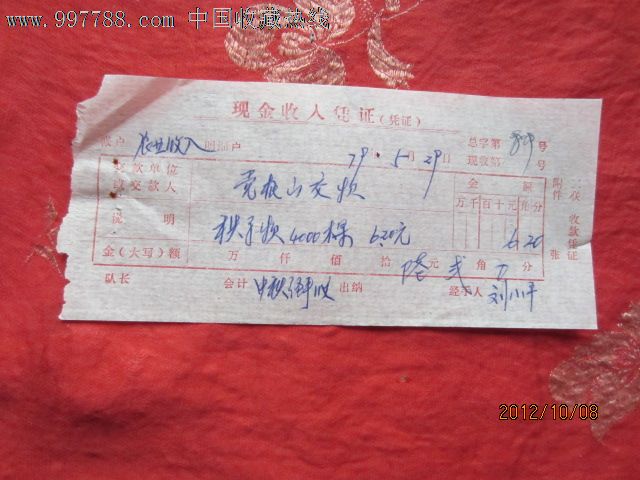 www.997788.com 中国收藏热线
现金收入凭证(凭证)
账户 农业收入 明细户 总字第 号
79年5月29日 现收第 号
交款单位 金额 附件 张
或交款人 山交款 万千百十元角分
说明 秧子款4000棵 6.20元 6.20
金(大写)额 万 仟 佰 拾 陆元 弍角 0分
队长 会计 出纳 经手人 刘小平
收款凭证
2012/10/08